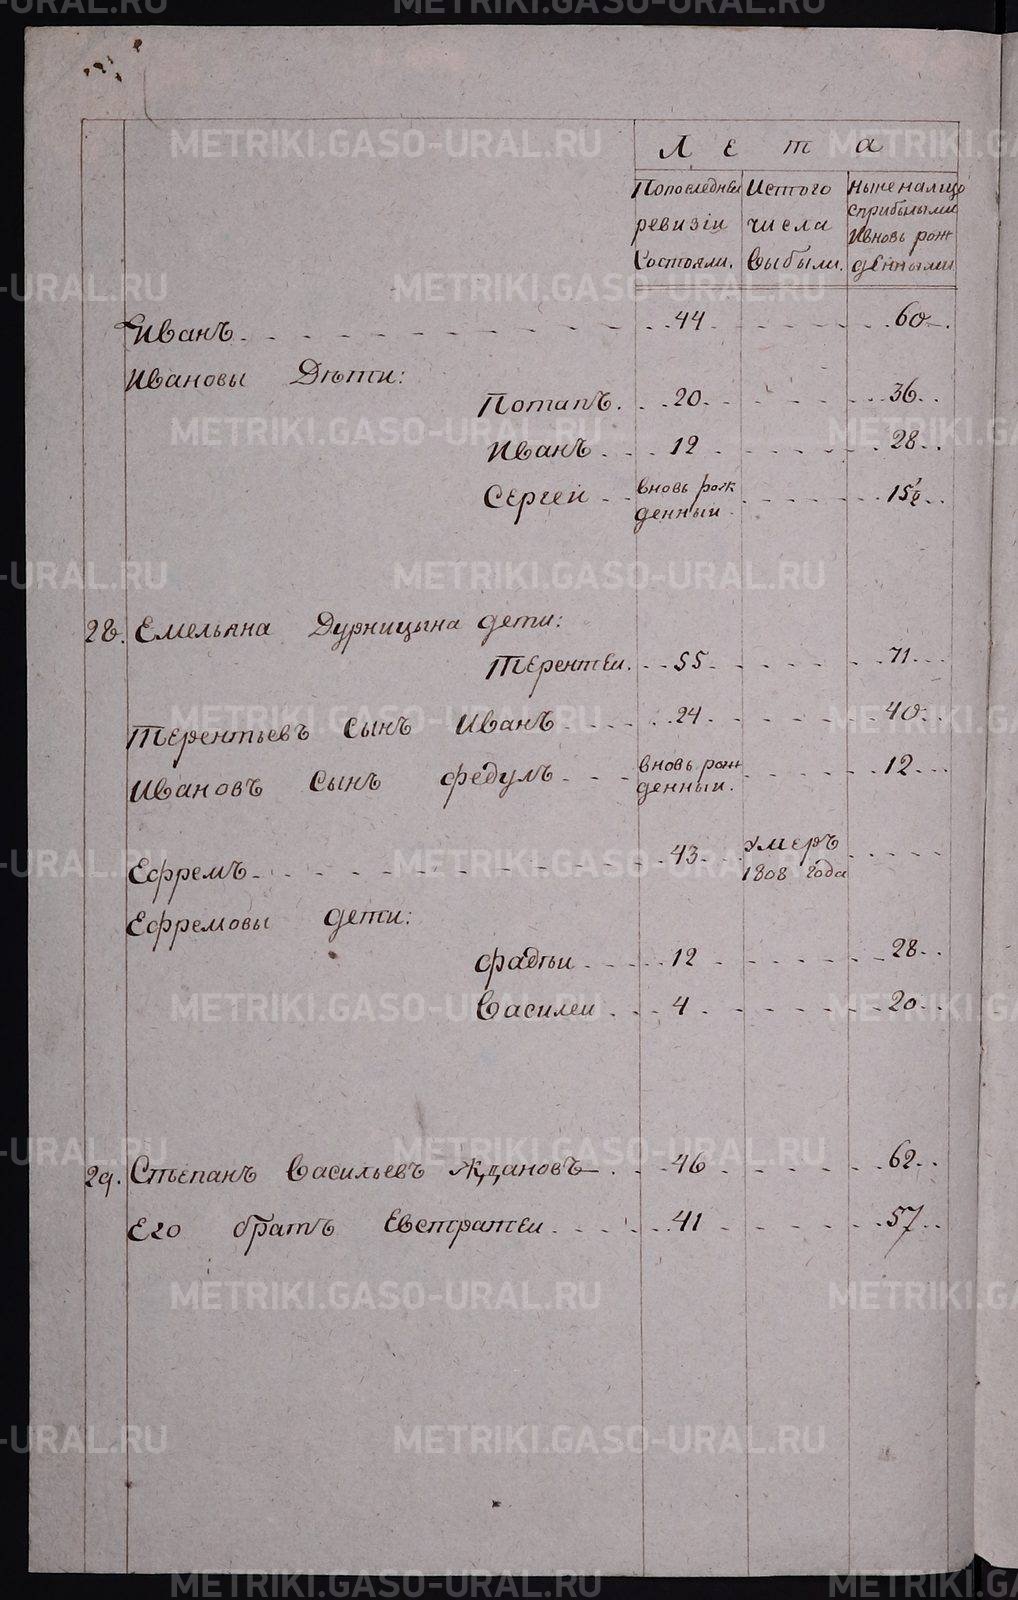 Лета
По последней ревизiи Состояли.
Из того числа Выбыли.
Ныне налицо с прибылыми И вновь рожденными
Иванъ 44 60
Ивановы Дѣти:
Потапъ. 20 36
Иванъ 12 28
Сергей вновь рожденный 15½
28. Емельяна Дурницына дети:
Терентеи. 55 71
Терентьевъ сынъ Иванъ 24 40
Ивановъ сынъ федулъ вновь рожденныи. 12
Ефремъ 43 умеръ 1808 года
Ефремовы дети:
фадѣи 12 28
Василеи 4 20
29. Стѣпанъ Васильевъ Ждановъ 46 62
Его братъ Евстратеи 41 57
METRIKI.GASO-URAL.RU